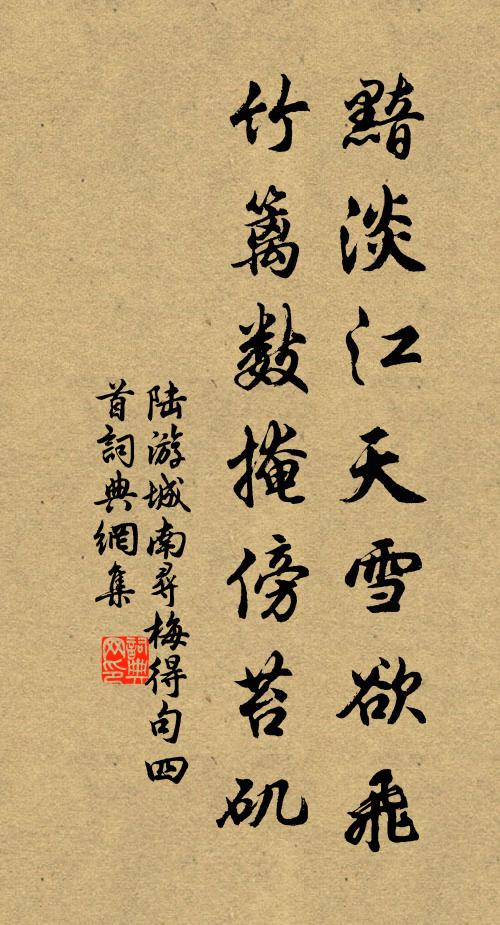 黯淡江天雪欲飛
竹籬數掩傍苔矶
陆游城南尋梅得句四
首詞典網集
詞典
网印